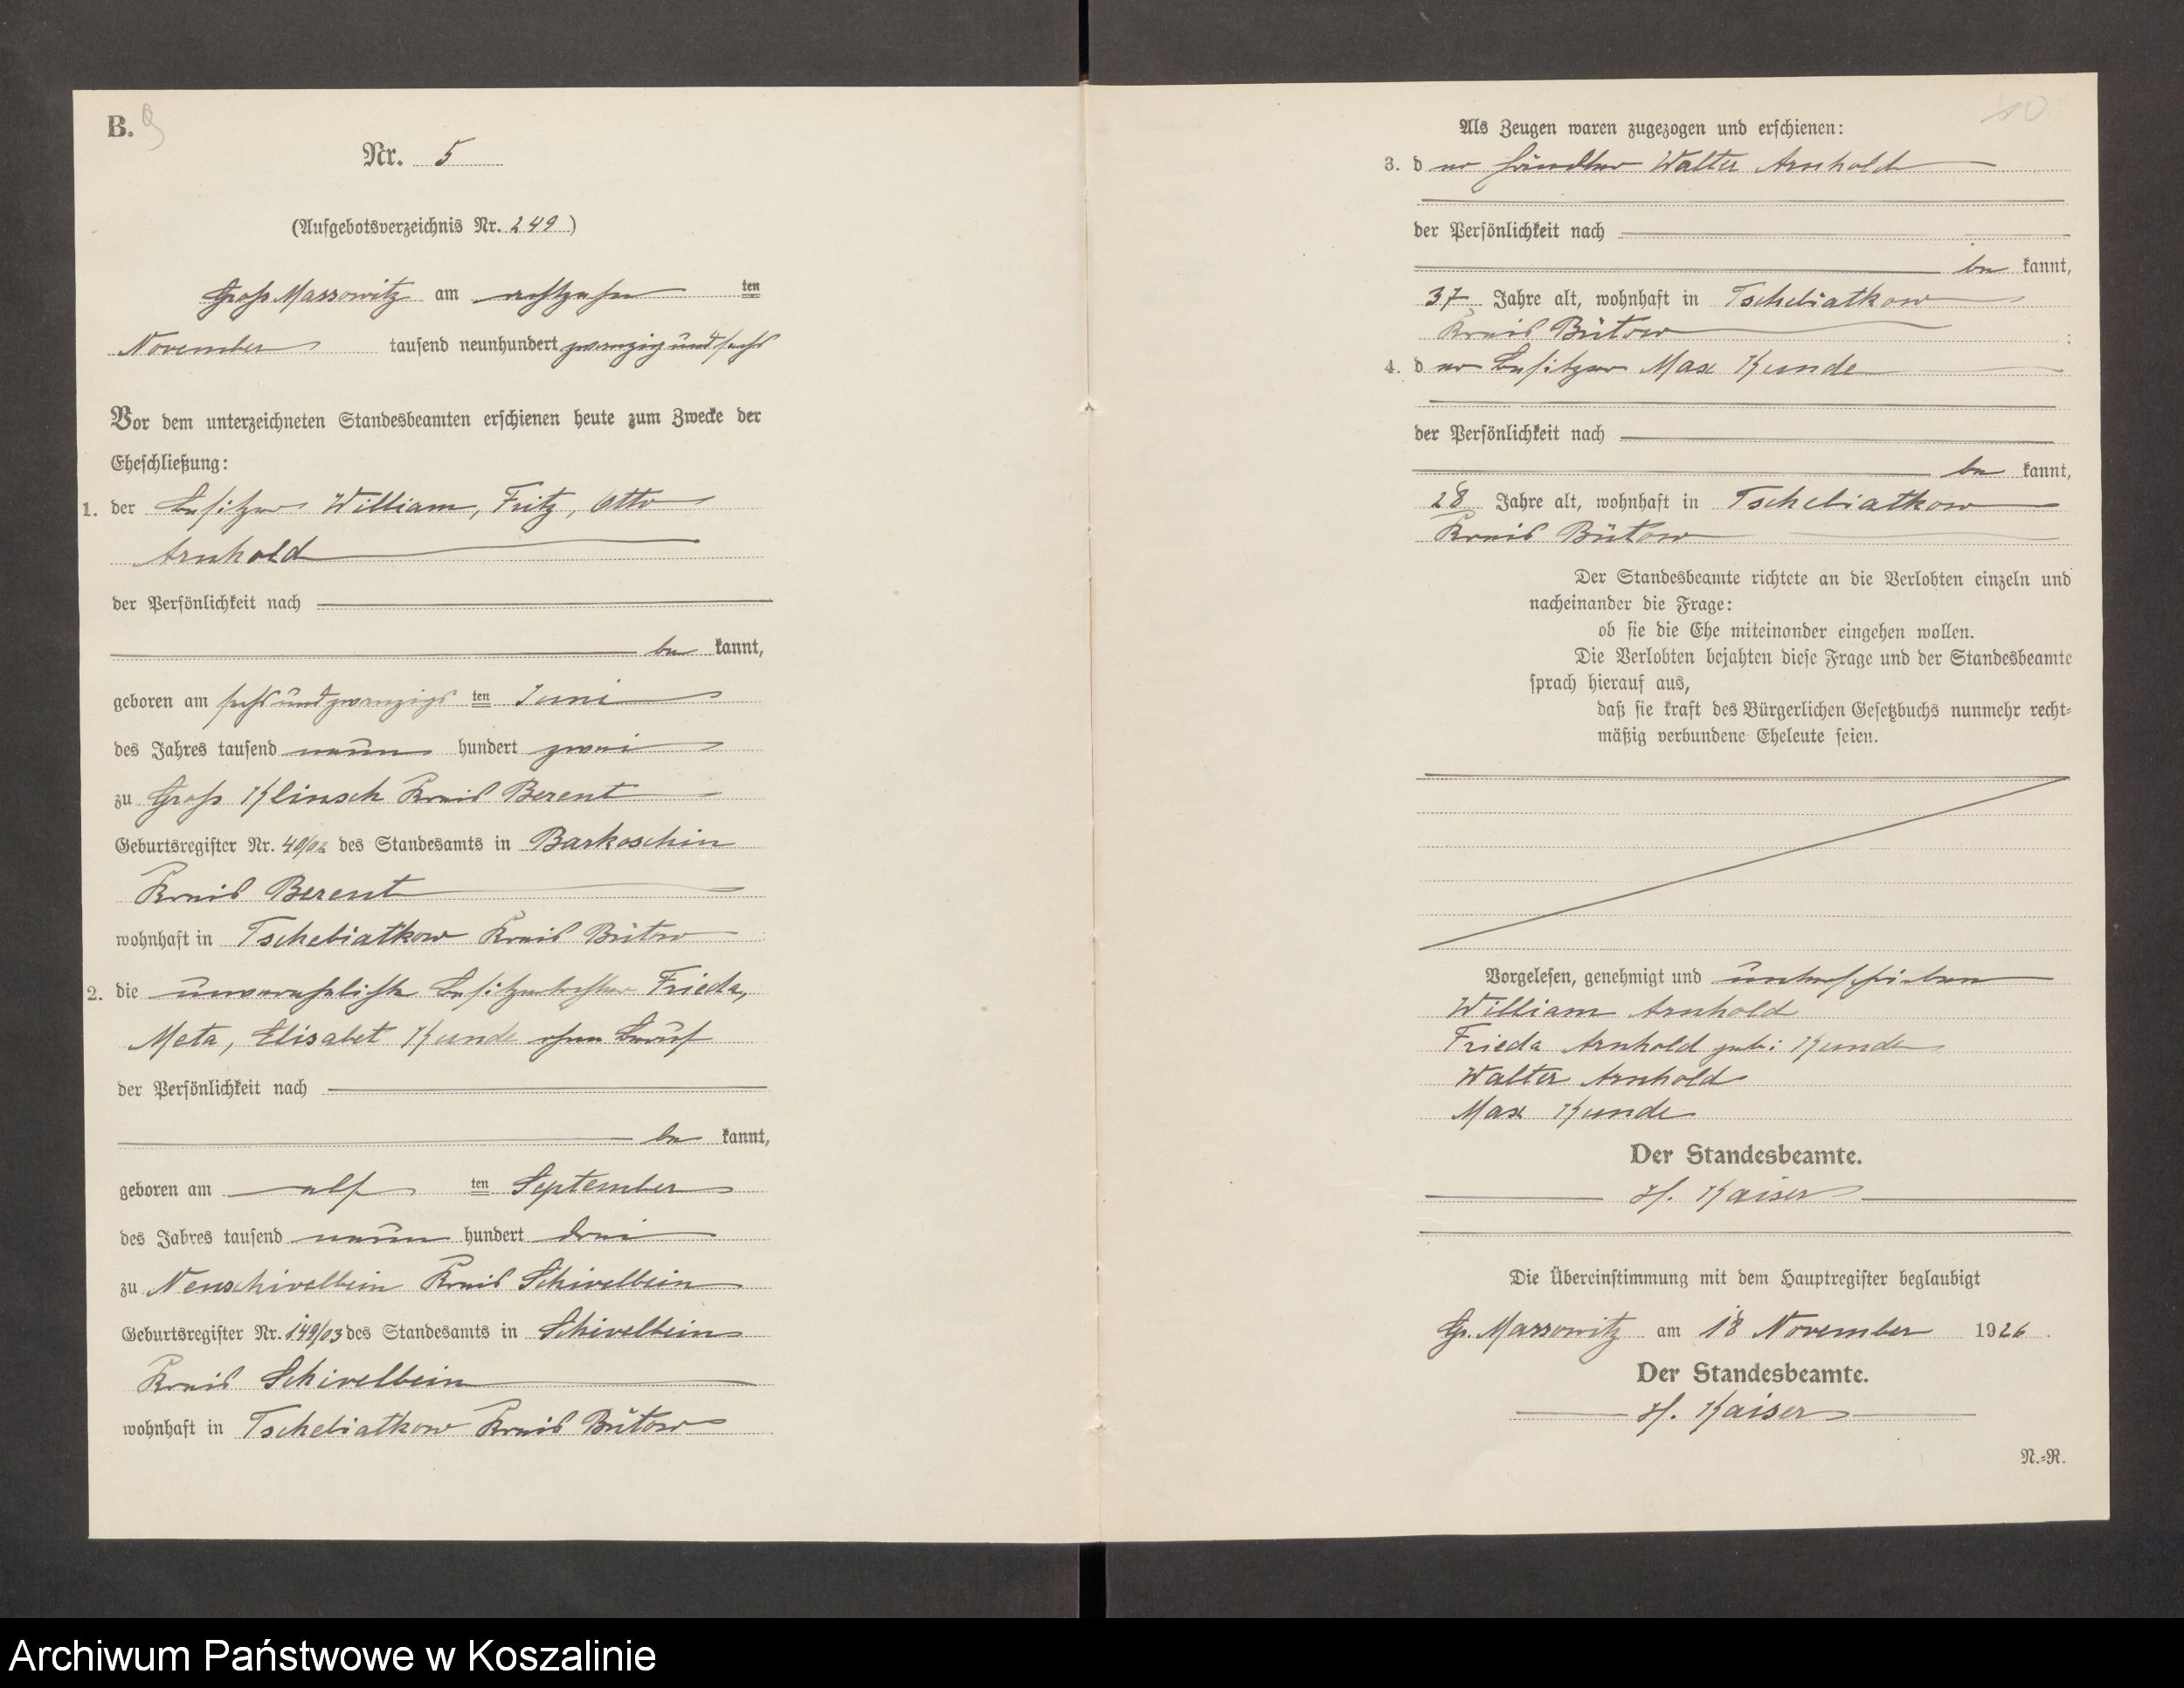 B. 9
Nr. 5
(Aufgebotsverzeichnis Nr. 249)
Groß Massowitz am achtzehn ten
November tausend neunhundert zwanzig und sechs
Vor dem unterzeichneten Standesbeamten erschienen heute zum Zwecke der
Eheschließung:
1. der Besitzer William, Fritz, Otto
Arnhold
der Persönlichkeit nach
be kannt,
geboren am sechsundzwanzigs ten Juni
des Jahres tausend neun hundert zwei
zu Groß Klinsch Kreis Berent
Geburtsregister Nr. 40/02 des Standesamts in Barkoschin
Kreis Berent
wohnhaft in Tschebiatkow Kreis Bütow
2. die unverehelichte Besitzertochter Frieda,
Meta, Elisabet Kunde ohne Beruf
der Persönlichkeit nach
be kannt,
geboren am elf ten September
des Jahres tausend neun hundert drei
zu Neuschivelbein Kreis Schivelbein
Geburtsregister Nr. 149/03 des Standesamts in Schivelbein
Kreis Schivelbein
wohnhaft in Tschebiatkow Kreis Bütow
10
Als Zeugen waren zugezogen und erschienen:
3. d er Händler Walter Arnhold
der Persönlichkeit nach
be kannt,
37 Jahre alt, wohnhaft in Tschebiatkow
Kreis Bütow ;
4. d er Besitzer Max Kunde
der Persönlichkeit nach
be kannt,
28 Jahre alt, wohnhaft in Tschebiatkow
Kreis Bütow
Der Standesbeamte richtete an die Verlobten einzeln und
nacheinander die Frage:
ob sie die Ehe miteinander eingehen wollen.
Die Verlobten bejahten diese Frage und der Standesbeamte
sprach hierauf aus,
daß sie kraft des Bürgerlichen Gesetzbuchs nunmehr recht-
mäßig verbundene Eheleute seien.
Vorgelesen, genehmigt und unterschrieben
William Arnhold
Frieda Arnhold geb: Kunde
Walter Arnhold
Max Kunde
Der Standesbeamte.
H. Kaiser
Die Übereinstimmung mit dem Hauptregister beglaubigt
Gr. Massowitz am 18 November 1926.
Der Standesbeamte.
H. Kaiser
N.-R.
Archiwum Państwowe w Koszalinie